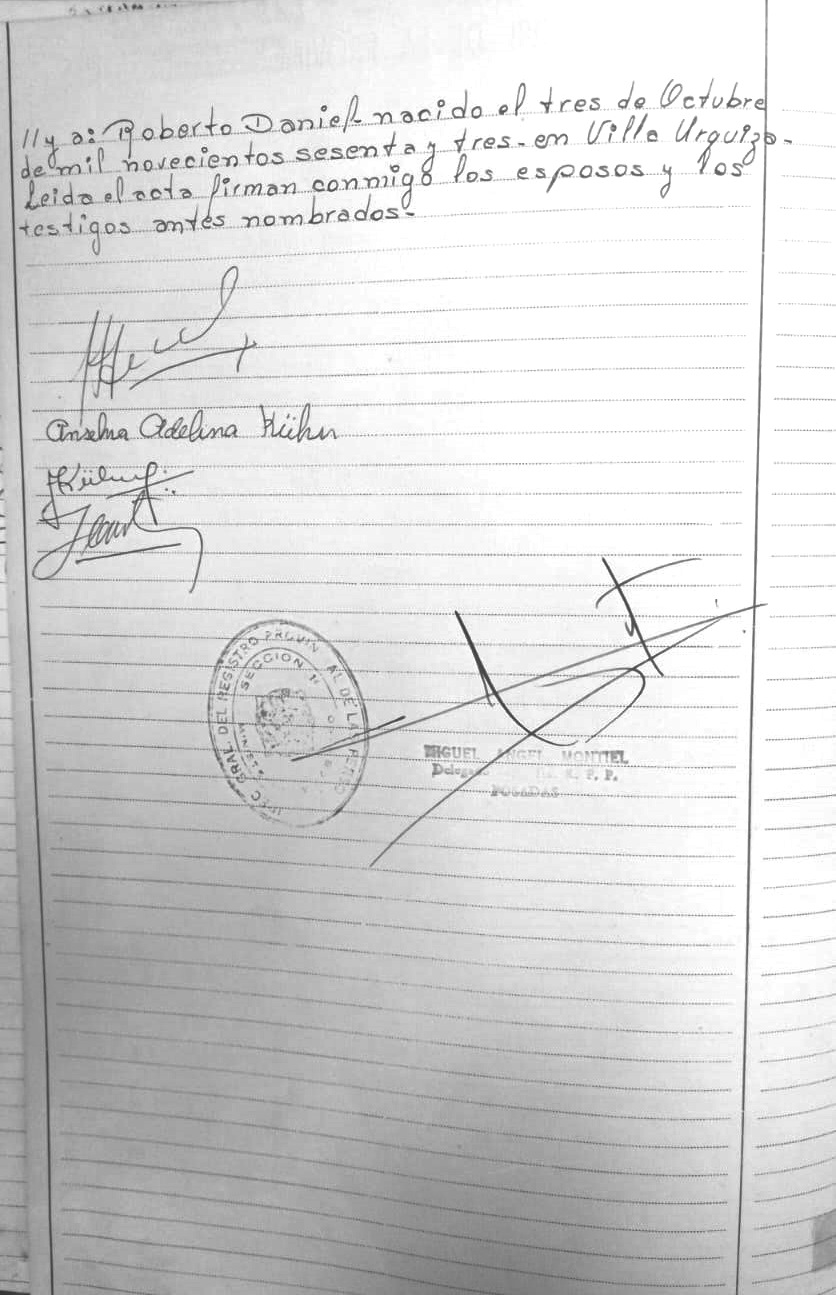 //y a: Roberto Daniel- nacido el tres de Octubre
de mil novecientos sesenta y tres- en Villa Urquiza-
Leida el acta firman conmigo los esposos y los
testigos antes nombrados-
Anselma Adelina Kühn
GRAL DEL REGISTRO DE LAS
SECCION 1ª
MIGUEL ANGEL MONTIEL
R. P. P.
POSADAS